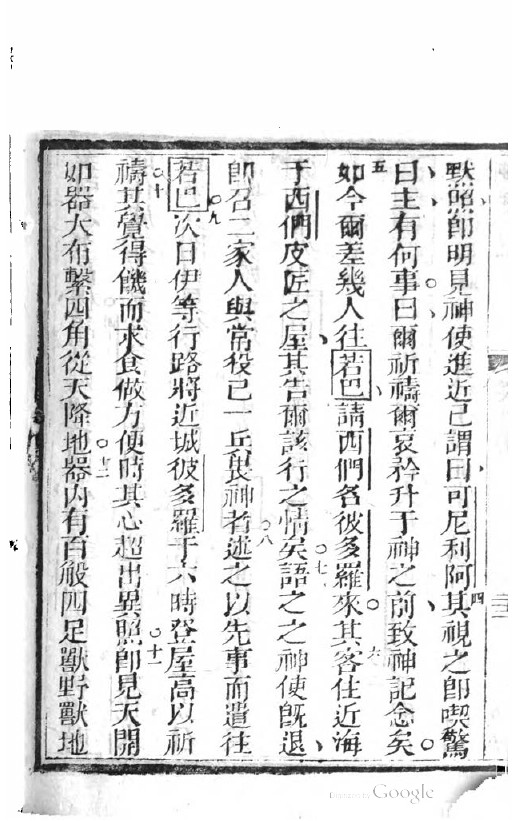 默照卽明見神使進近己謂曰可尼利阿其四視之卽喫驚
曰主有何事曰爾祈禱爾哀矜升于神之前致神記念矣
五如今爾差幾人往若巴請西們名彼多羅來六其客住近海
于西們皮匠之屋其告爾該行之情矣七語之之神使旣退
卽召二家人與常役己一兵畏神者八述之以先事而遣往
若巴九次日伊等行路將近城彼多羅于六時登屋高以祈
禱十其覺得饑而求食做方便時其心超出異照十一卽見天開
如器大布繫四角從天降地十二器內有百般四足獸野獸地
Digitized by Google